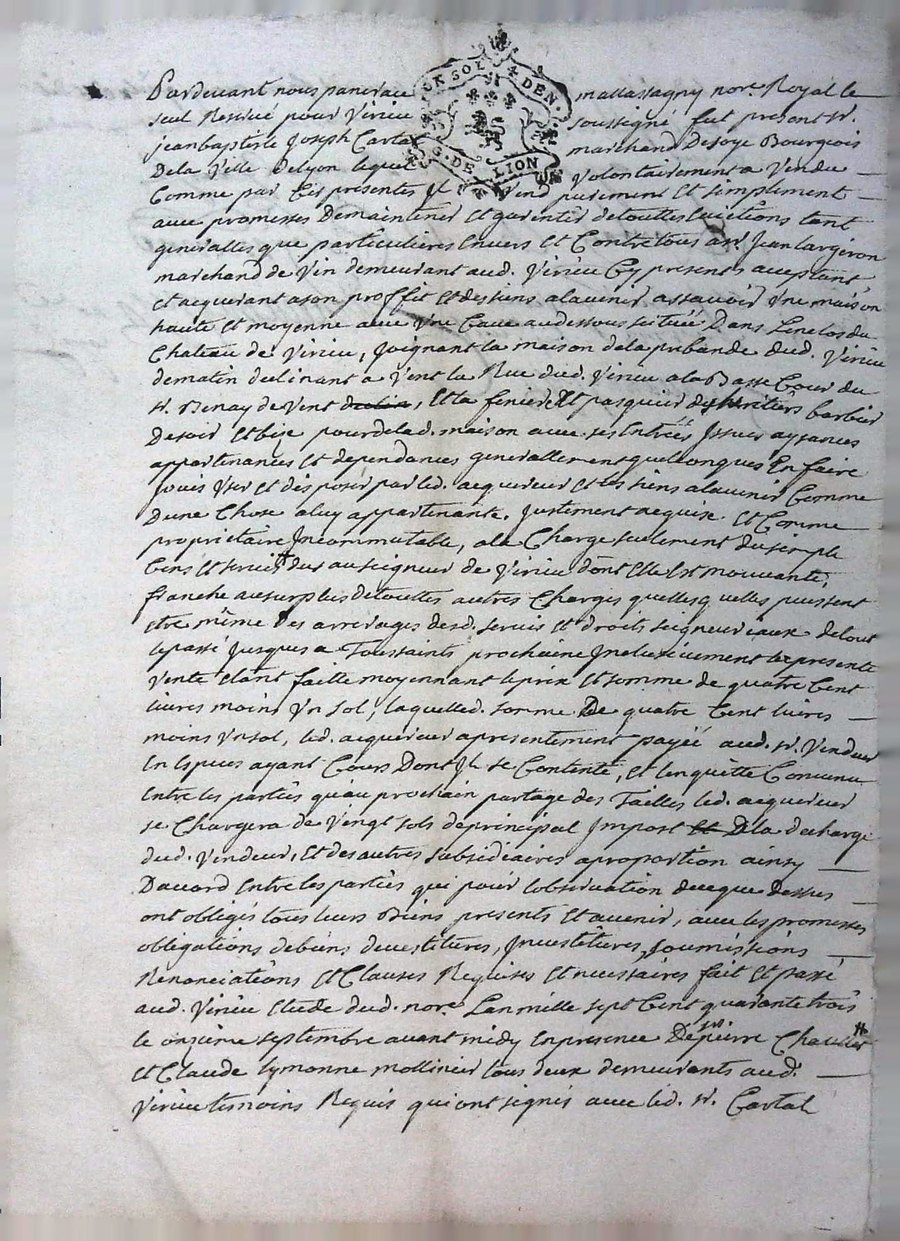 UN SOL 4 DEN.
G. DE LION
Pardevant nous pancrace mattassagny nore. Royal le
seul Reservé pour Virieu soussigné fut present sr.
jeanbaptiste Joseph Cartal marchand Desoye Bourgeois
Dela Ville delyon lequel volontairement a Vendu
Comme par Ces presentes Il Vend purement et simplement
avec promesses Demaintenir et garentir detouttes Evictions tant
generalles que particulieres Envers et Contre tous a sr. Jean largeron
marchand de Vin demeurant aud. Virieu Cy present acceptant
et acquerant a son proffit et des siens alavenir, assavoir Une maison
haute et moyenne avec Une Cave audessous scituée Dans Lenclos du
Chateau de Virieu, Joignant la maison dela prebande dud. Virieu
dematin declinant a Vent la Rue dud. Virieu a la Basse Cour du
sr. Benay de Vent, et la feniere et pasquier des heritiers barbier
Desoir et bise pour delad. maison avec ses Entrées Issues aysances
appartenances et dependances generallement quelconques En faire
Jouir User et disposer par led. acquereur et les siens alavenir Comme
Dune Chose a luy appartenante, Justement acquise et Comme
proprietaire Incommutable, ala Charge seulement du simple
Cens et servis dus au seigneur de Virieu dont Elle Est mouvante,
franche ausurplus detouttes autres Charges quelles q'uelles puissent
etre même des arrerages desd. servis et droits seigneuriaux detout
lepassé Jusques a Toussaints prochaine Inclusivement la presente
Vente etant faitte moyennant le prix et somme de quatre Cent
livres moins Un sol, laquelle d. somme De quatre Cent livres
moins Un sol, led. acquereur a presentement payée aud. sr. Vendeur
En Especes ayant Cours Dont Il se Contente, et l'en quitte Convenu
Entre les parties qu'au prochain partage des Tailles led. acquereur
se Chargera de Vingt sols de principal Impost a la decharge
dud. Vendeur, et des autres subsidiaires a proportion ainsy
Daccord Entre les parties qui pour lobservation de ce que Dessus
ont obligés tous leurs Biens presents et avenir, avec les promesses
obligations de biens devestitures, Investitures, soumissions
Renonciations et Clauses Requises et necessaires fait et passé
aud. Virieu etude dud. nore. Lan mille sept Cent quarante trois
le onzieme septembre avant midy En presence De sr. pierre
et Claude Symonne mollinier tous deux demeurants aud.
Virieu temoins Requis qui ont signés avec led. sr. Cartal